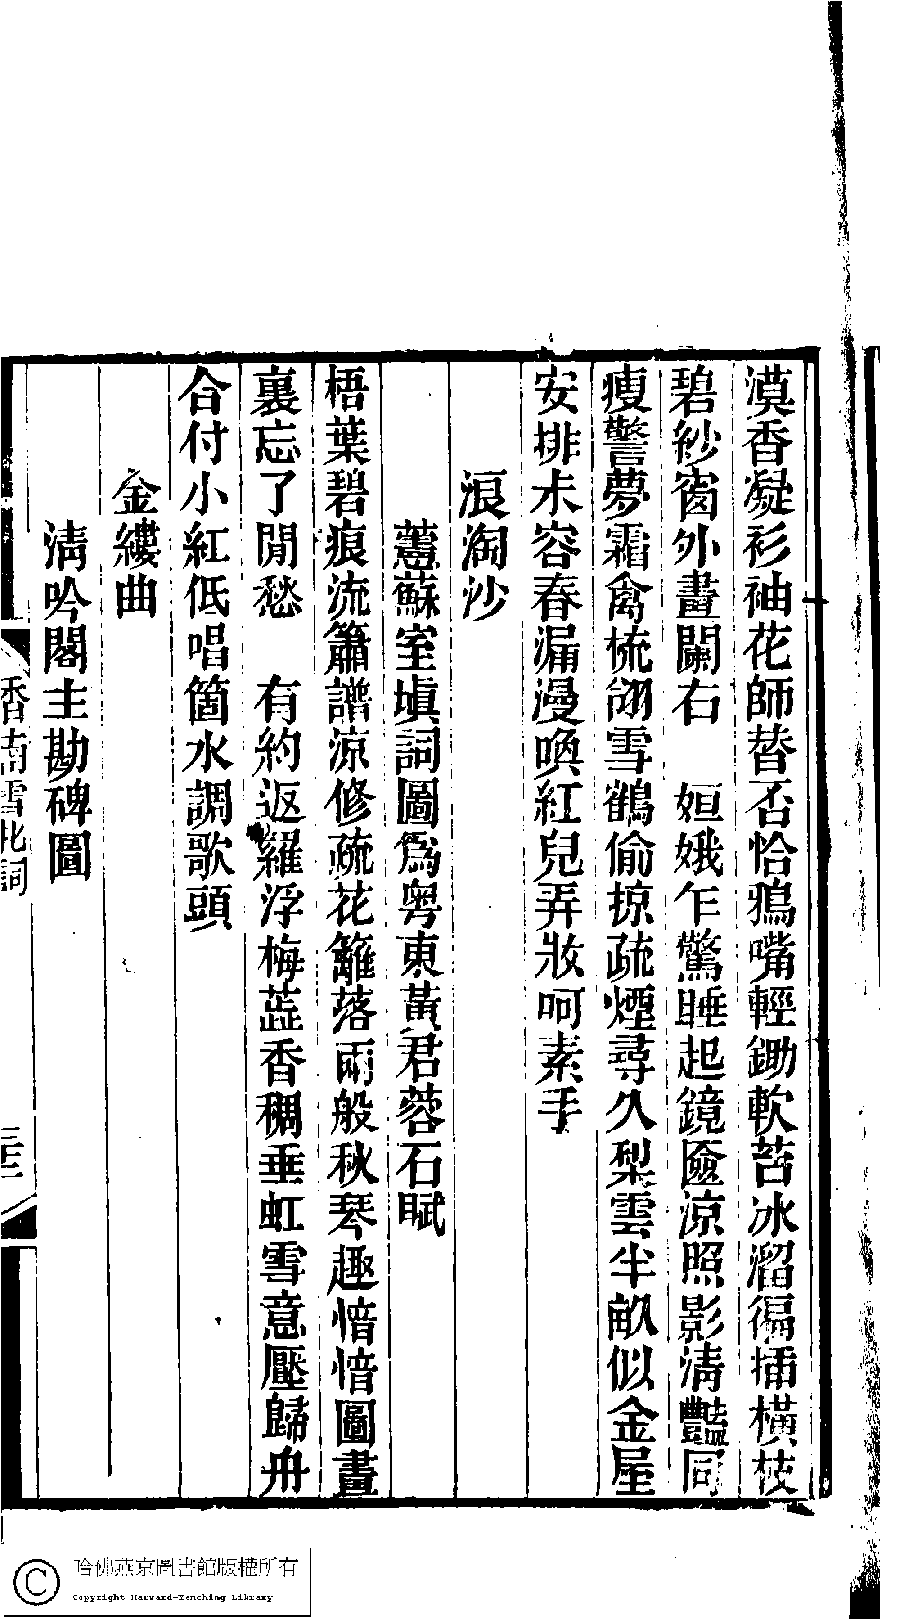 漠香凝衫袖花師替否恰鴉嘴輕鋤軟苔冰溜徧插橫枝
碧紗窗外畫闌右　姮娥乍驚睡起鏡匳涼照影淸豔同
瘦警夢霜禽梳翎雪鶴偷掠疏煙尋久梨雲半畝似金屋
安排未容春漏漫喚紅兒弄妝呵素手
浪淘沙
蕙蘇室塡詞圖爲粤東黃君蓉石賦
梧葉碧痕流簫譜涼修疏花籬落雨般秋琴趣愔愔圖畫
裏忘了閒愁　有約返羅浮梅蕋香稠垂虹雪意壓歸舟
合付小紅低唱箇水調歌頭
金縷曲
淸吟閣主勘碑圖
香南雪北詞
哈佛燕京圖書館版權所有
Copyright Harvard-Yenching Library